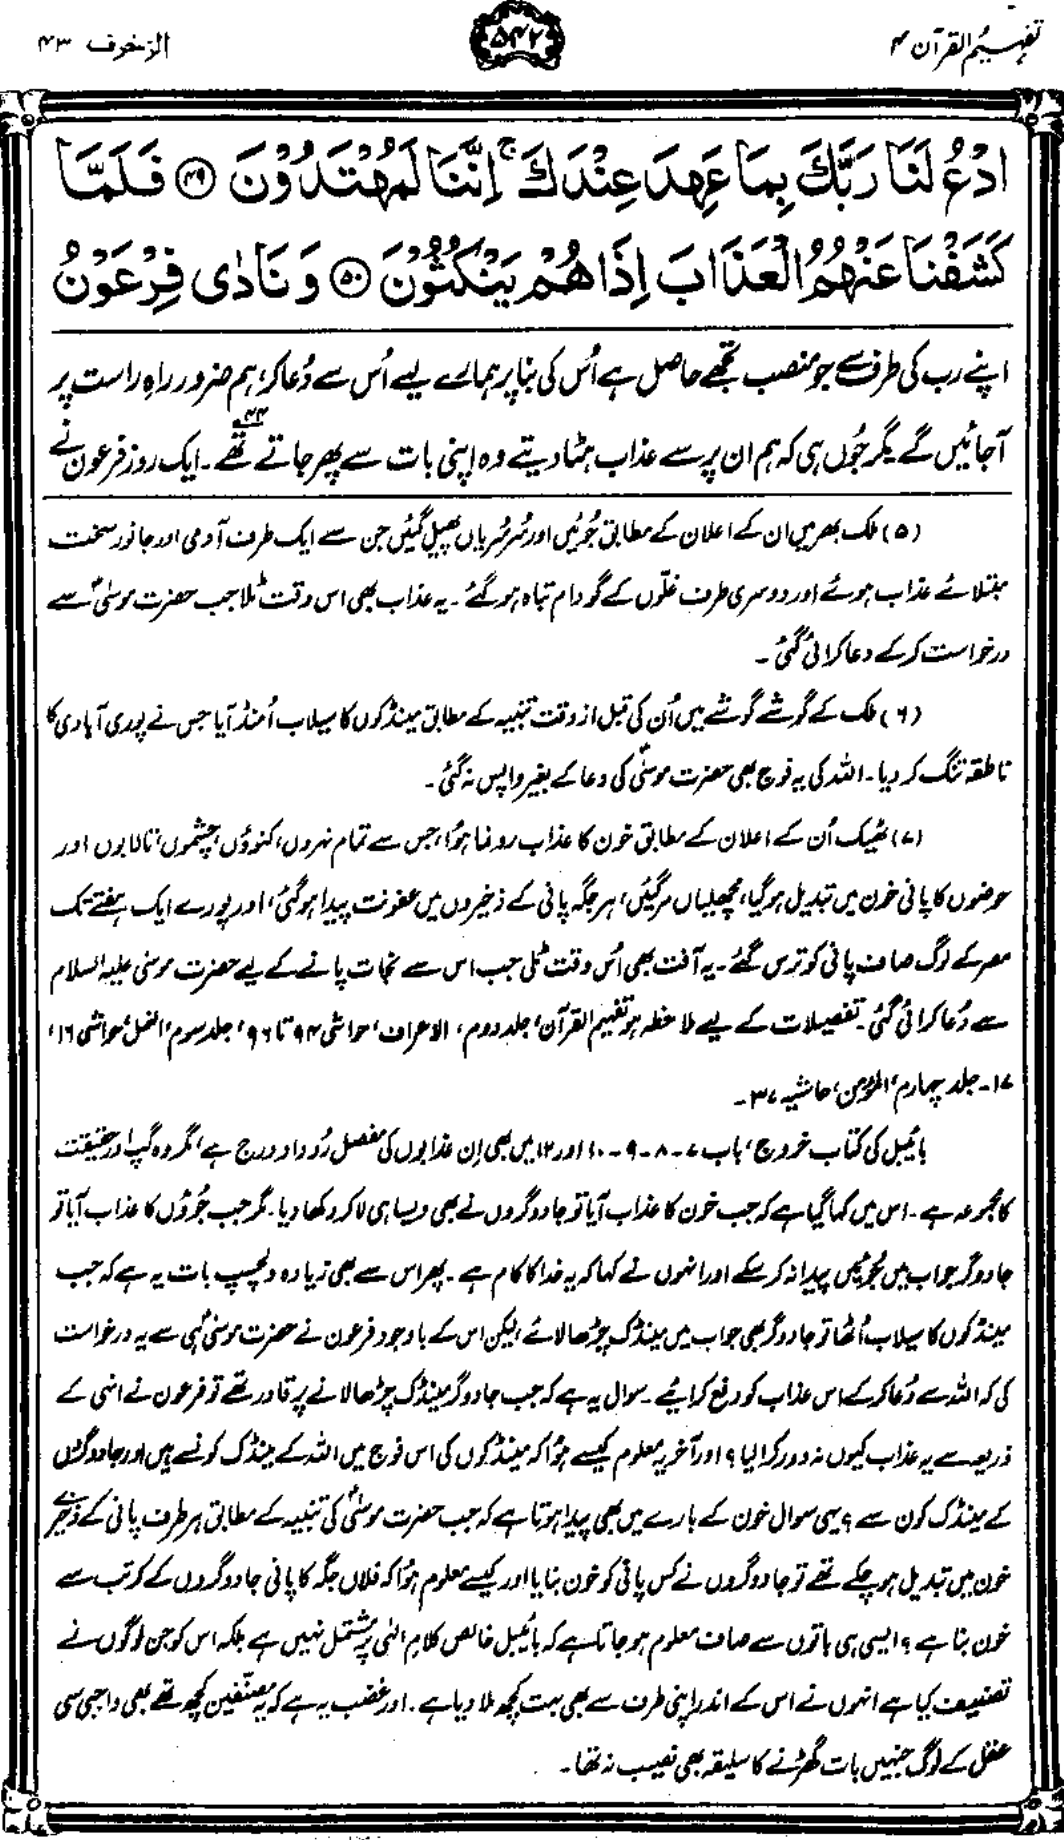 تفہیم القرآن ۴
۵۴۲
الزخرف ۴۳
ادْعُ لَنَا رَبَّكَ بِمَا عَهِدَ عِنْدَكَ ۚ اِنَّنَا لَمُهْتَدُوْنَ ﴿۴۹﴾ فَلَمَّا
كَشَفْنَا عَنْهُمُ الْعَذَابَ اِذَا هُمْ يَنْكُثُوْنَ ﴿۵۰﴾ وَ نَادٰى فِرْعَوْنُ
اپنے رب کی طرف سے جو منصب تجھے حاصل ہے اُس کی بنا پر ہمارے لیے اُس سے دُعا کر، ہم ضرور راہِ راست پر
آجائیں گے۔ مگر جُوں ہی کہ ہم ان پر سے عذاب ہٹا دیتے وہ اپنی بات سے پھر جاتے تھے۔ ۴۴ ایک روز فرعون نے
(۵) ملک بھر میں ان کے اعلان کے مطابق جُوئیں اور سُرسُریاں پھیل گئیں جن سے ایک طرف آدمی اور جانور سخت
مبتلائے عذاب ہوئے اور دوسری طرف غلّوں کے گودام تباہ ہو گئے۔ یہ عذاب بھی اس وقت ٹلا جب حضرت موسیٰؑ سے
درخواست کر کے دعا کرائی گئی۔
(۶) ملک کے گوشے گوشے میں اُن کی قبل از وقت تنبیہ کے مطابق مینڈکوں کا سیلاب اُمنڈ آیا جس نے پوری آبادی کا
ناطقہ تنگ کر دیا۔ اللہ کی یہ فوج بھی حضرت موسیٰؑ کی دعا کے بغیر واپس نہ گئی۔
(۷) ٹھیک اُن کے اعلان کے مطابق خون کا عذاب رونما ہوا، جس سے تمام نہروں، کنوؤں، چشموں، تالابوں اور
حوضوں کا پانی خون میں تبدیل ہو گیا، مچھلیاں مر گئیں، ہر جگہ پانی کے ذخیروں میں عفونت پیدا ہو گئی، اور پورے ایک ہفتے تک
مصر کے لوگ صاف پانی کو ترس گئے۔ یہ آفت بھی اُس وقت ٹلی جب اس سے نجات پانے کے لیے حضرت موسیٰ علیہ السلام
سے دُعا کرائی گئی۔ تفصیلات کے لیے ملاحظہ ہو تفہیم القرآن، جلد دوم، الاعراف، حواشی ۹۴ تا ۹۶، جلد سوم، النمل، حواشی ۱۶،
۱۷۔ جلد چہارم، المؤمن، حاشیہ ۳۷۔
بائیبل کی کتاب خروج، باب ۷-۸-۹-۱۰ اور ۱۲ میں بھی اِن عذابوں کی مفصل رُوداد درج ہے، مگر وہ گپ اور حقیقت
کا مجموعہ ہے۔ اس میں کہا گیا ہے کہ جب خون کا عذاب آیا تو جادوگروں نے بھی ویسا ہی لا کر دکھا دیا۔ مگر جب جُوؤں کا عذاب آیا تو
جادوگر جواب میں جُوئیں پیدا نہ کر سکے اور انہوں نے کہا کہ یہ خدا کا کام ہے۔ پھر اس سے بھی زیادہ دلچسپ بات یہ ہے کہ جب
مینڈکوں کا سیلاب اُٹھا تو جادوگر بھی جواب میں مینڈک چڑھا لائے، لیکن اس کے باوجود فرعون نے حضرت موسیٰؑ ہی سے یہ درخواست
کی کہ اللہ سے دُعا کر کے اس عذاب کو رفع کرائیے۔ سوال یہ ہے کہ جب جادوگر مینڈک چڑھا لانے پر قادر تھے تو فرعون نے انہی کے
ذریعہ سے یہ عذاب کیوں نہ دور کرا لیا؟ اور آخر یہ معلوم کیسے ہوا کہ مینڈکوں کی اس فوج میں اللہ کے مینڈک کونسے ہیں اور جادوگروں
کے مینڈک کون سے؟ یہی سوال خون کے بارے میں بھی پیدا ہوتا ہے کہ جب حضرت موسیٰؑ کی تنبیہ کے مطابق ہر طرف پانی کے ذخیرے
خون میں تبدیل ہو چکے تھے تو جادوگروں نے کس پانی کو خون بنایا اور کیسے معلوم ہوا کہ فلاں جگہ کا پانی جادوگروں کے کرتب سے
خون بنا ہے؟ ایسی ہی باتوں سے صاف معلوم ہو جاتا ہے کہ بائیبل خالص کلامِ الٰہی پر مشتمل نہیں ہے بلکہ اس کو جن لوگوں نے
تصنیف کیا ہے انہوں نے اس کے اندر اپنی طرف سے بھی بہت کچھ ملا دیا ہے۔ اور غضب یہ ہے کہ یہ مصنّفین کچھ تھے بھی واجبی سی
عقل کے لوگ جنہیں بات گھڑنے کا سلیقہ بھی نصیب نہ تھا۔